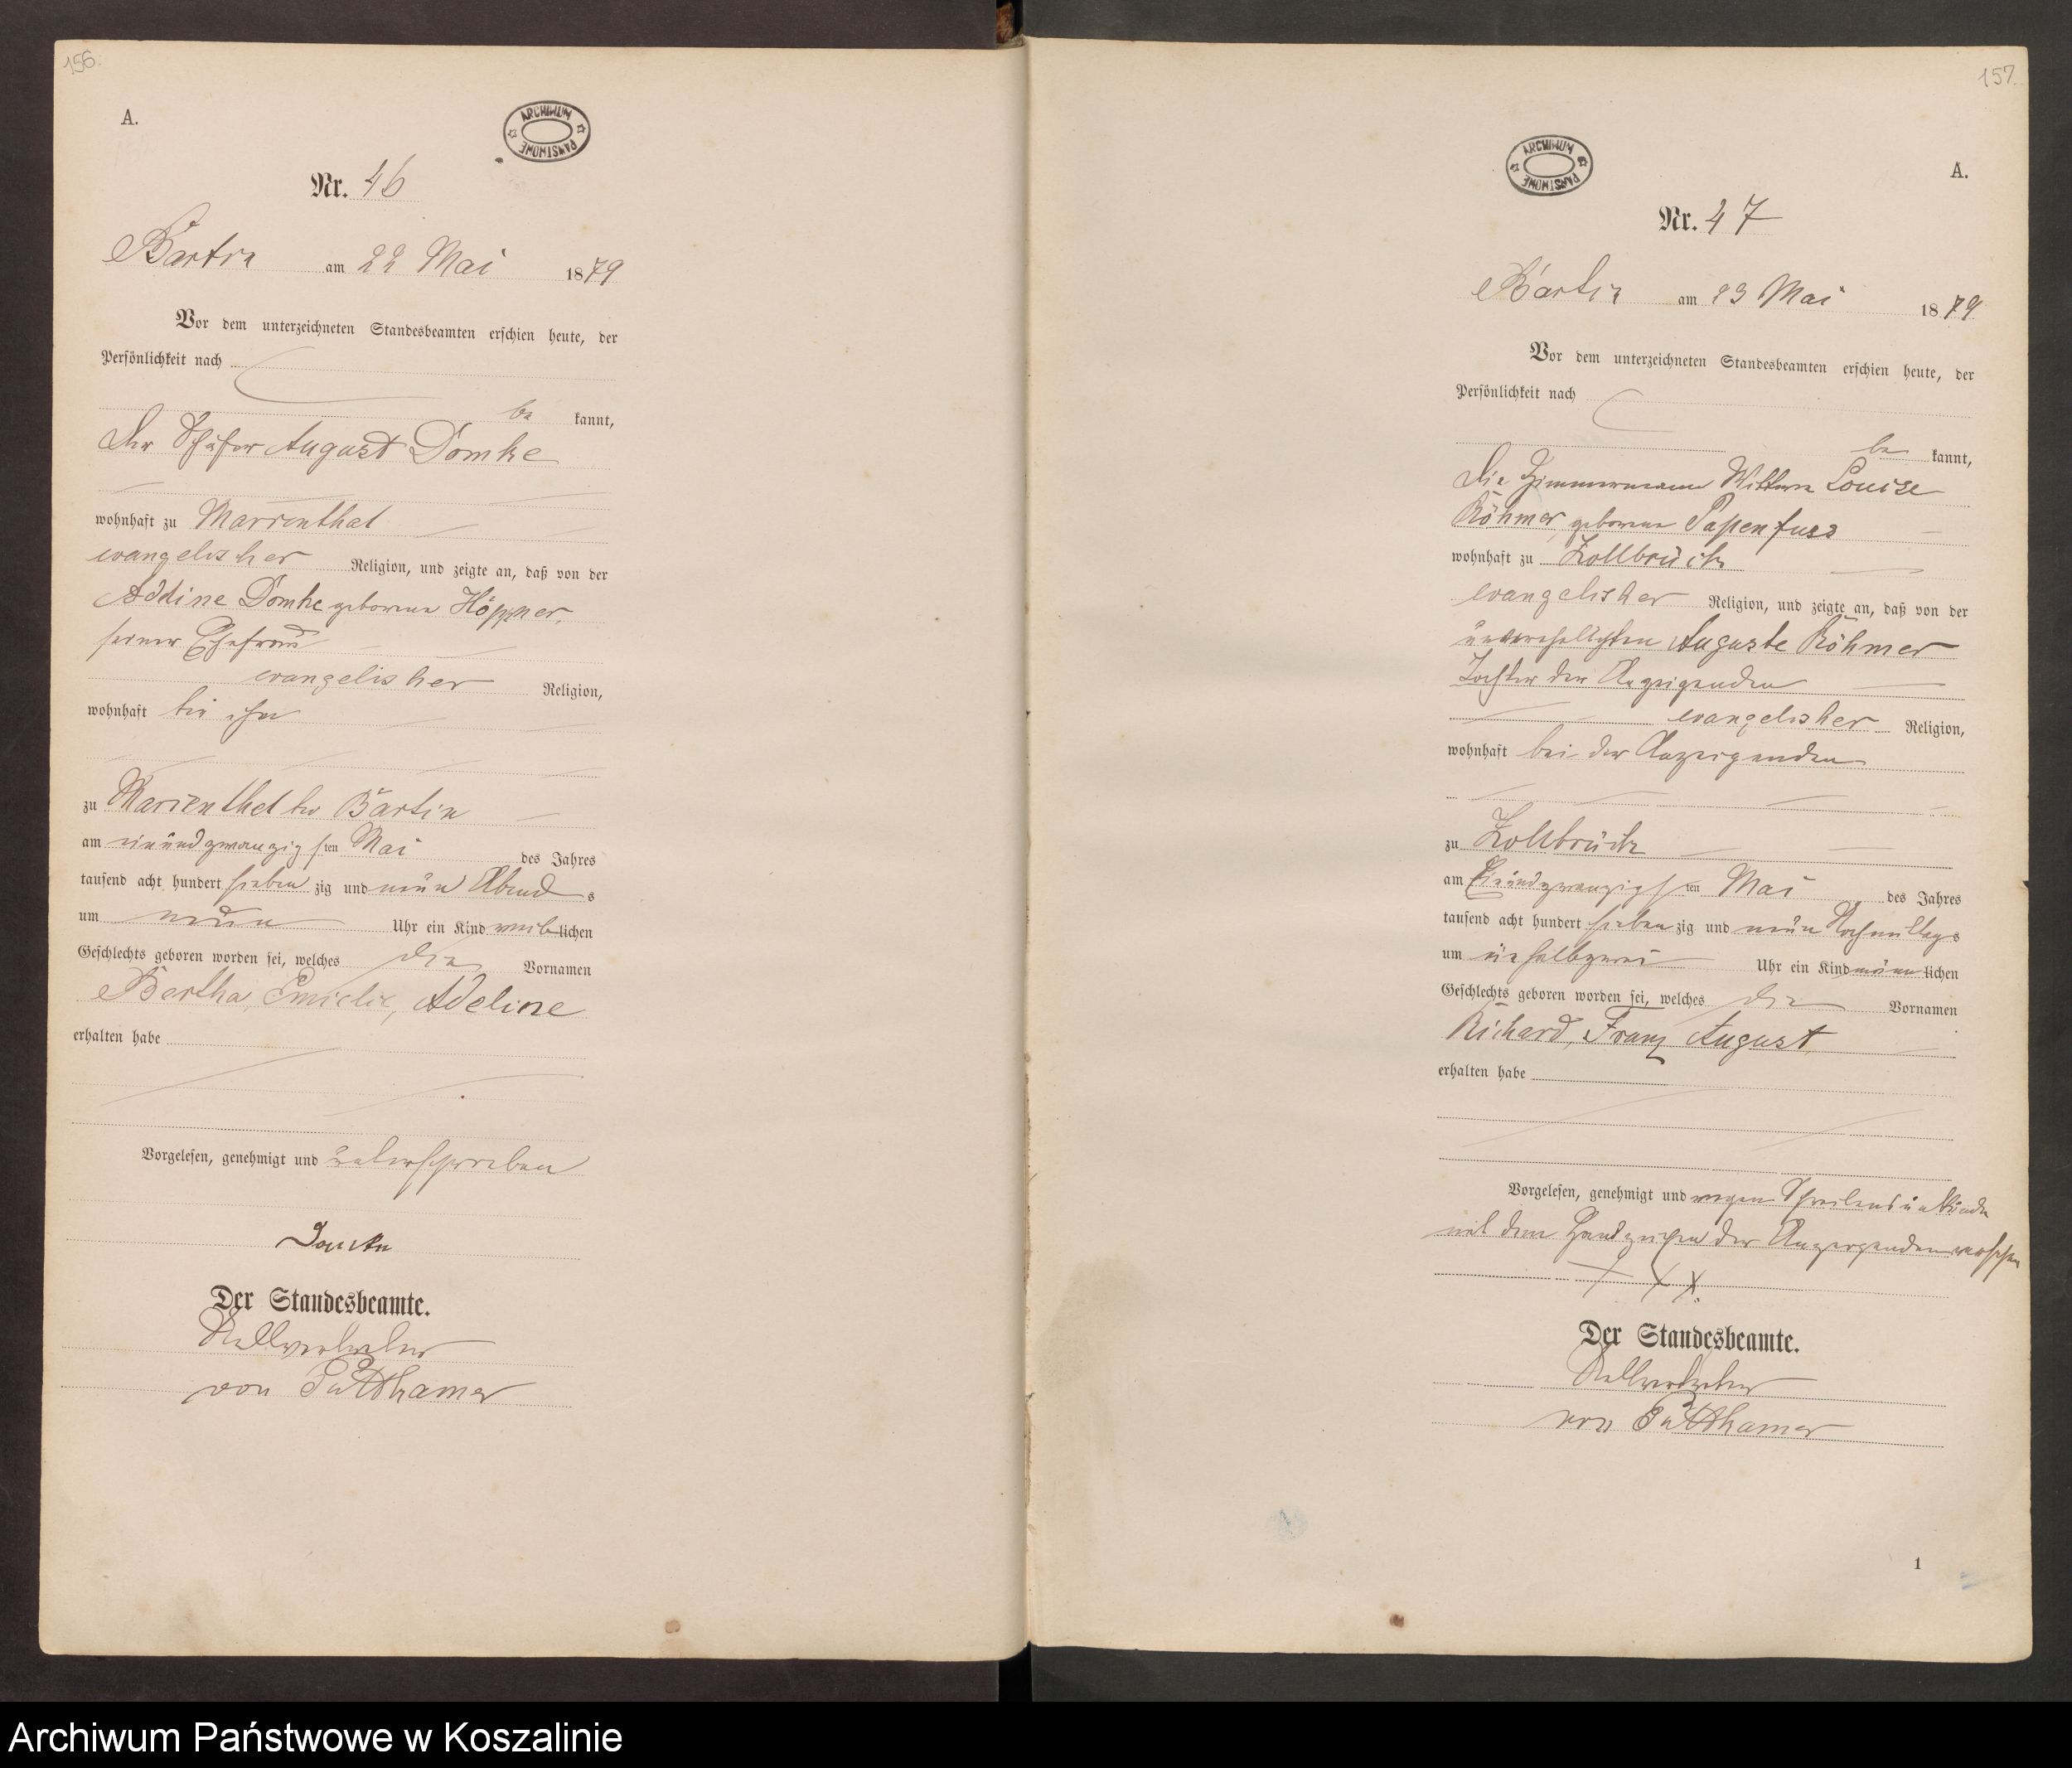 156.
A.
ARCHIWUM PAŃSTWOWE
Nr. 46
Bartin am 22 Mai 1879
Vor dem unterzeichneten Standesbeamten erschien heute, der
Persönlichkeit nach
be kannt,
der Schäfer August Domke
wohnhaft zu Marienthal
evangelischer Religion, und zeigte an, daß von der
Addine Domke geborenen Höppner,
seiner Ehefrau
evangelischer Religion,
wohnhaft bei ihm
zu Marienthal bei Bartin
am einundzwanzigsten Mai des Jahres
tausend acht hundert siebenzig und neun Abends
um neun Uhr ein Kind weiblichen
Geschlechts geboren worden sei, welches die Vornamen
Bertha, Emielie, Adeline
erhalten habe
Vorgelesen, genehmigt und unterschrieben
Domke
Der Standesbeamte.
Stellvertreter
von Puttkamer
157.
A.
ARCHIWUM PAŃSTWOWE
Nr. 47
Bartin am 23 Mai 1879
Vor dem unterzeichneten Standesbeamten erschien heute, der
Persönlichkeit nach
be kannt,
die Zimmermann Wittwe Louise
Röhmer, geborene Papenfuss
wohnhaft zu Zollbrück
evangelischer Religion, und zeigte an, daß von der
unverehelichten Auguste Röhmer
Tochter der Anzeigenden
evangelischer Religion,
wohnhaft bei der Anzeigenden
zu Zollbrück
am Einundzwanzigsten Mai des Jahres
tausend acht hundert siebenzig und neun Nachmittags
um ein halbzwei Uhr ein Kind männlichen
Geschlechts geboren worden sei, welches die Vornamen
Richard, Franz August
erhalten habe
Vorgelesen, genehmigt und wegen Schreibensunkunde
mit dem Handzeichen der Anzeigenden versehen
X X X.
Der Standesbeamte.
Stellvertreter
von Puttkamer
1
Archiwum Państwowe w Koszalinie